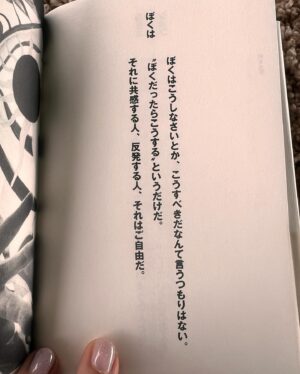 ぼくは
ぼくはこうしなさいとか、こうすべきだなんて言うつもりはない。
“ぼくだったらこうする”というだけだ。
それに共感する人、反発する人、それはご自由だ。